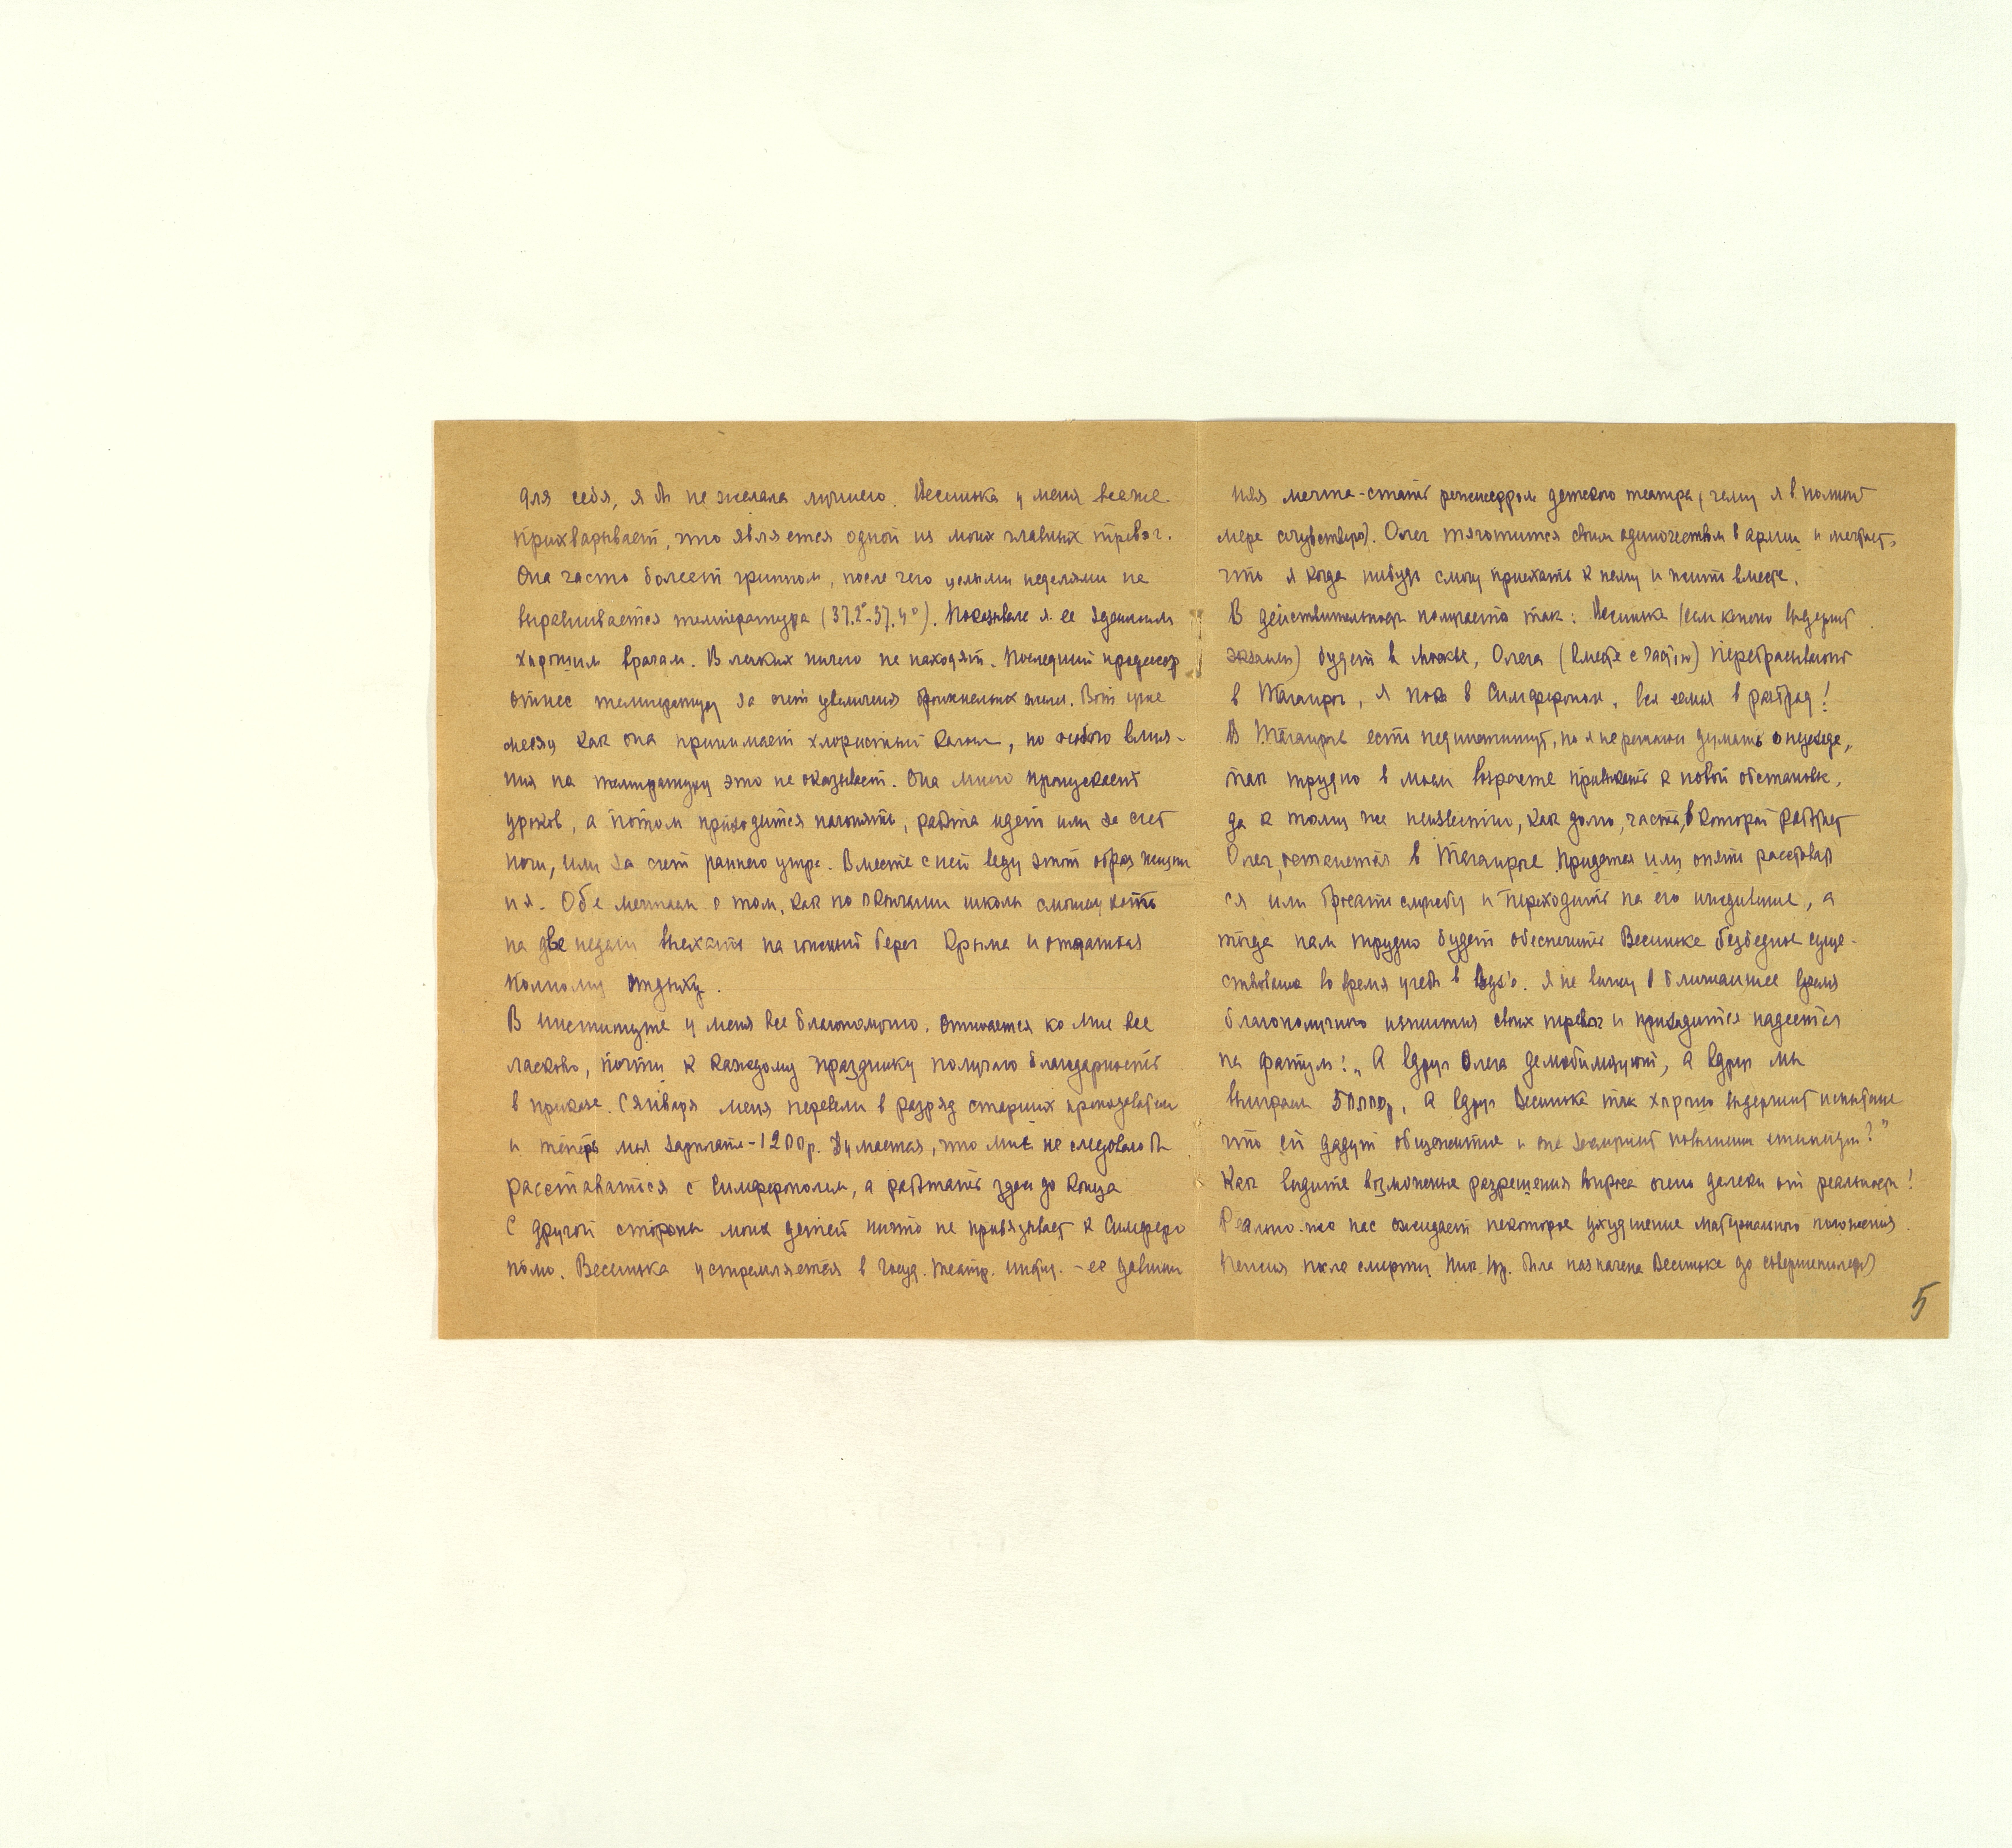 для себя, я б не желала лучшего. Весинька у меня все же
прихварывает, что является одной из моих главных тревог.
Она часто болеет гриппом, после чего целыми неделями не
выравнивается температура (37,2°-37,4°). Показывала я ее здешним
хорошим врачам. В легких ничего не находят. Последний профессор
отнес температуру за счет увеличения бронхиальных желез. Вот уже
месяц как она принимает хлористый кальций, но особого влия-
ния на температуру это не оказывает. Она много пропускает
уроков, а потом приходится нагонять, работа идет или за счет
ночи, или за счет раннего утра. Вместе с ней веду этот образ жизни
и я. Обе мечтаем о том, как по окончании школы сможем хоть
на две недели выехать на южный берег Крыма и отдаться
полному отдыху.
В институте у меня все благополучно. Относятся ко мне все
ласково, почти к каждому празднику получаю благодарность
в приказе. С января меня перевели в разряд старших преподавателей
и теперь моя зарплата - 1200 р. Думается, что мне не следовало бы
расставаться с Симферополем, а работать здесь до конца
С другой стороны моих детей ничто не привязывает к Симферо
полю. Весинька устремляется в Госуд. театр. инстит. - ее давниш
няя мечта - стать режиссером детского театра (чему я в полной
мере сочувствую). Олег тяготится своим одиночеством в армии и мечтает,
что я когда нибудь смогу приехать к нему и жить вместе.
В действительности получается так: Весинька (если конечно выдержит
экзамен) будет в Москве, Олега (вместе с частью) перебрасывают
в Таганрог, я пока в Симферополе, вся семья в разброд!
В Таганроге есть пединститут, но я не решаюсь думать о переезде,
так трудно в моем возрасте привыкать к новой обстановке,
да к тому же неизвестно, как долго, часть, в которой работает
Олег, останется в Таганроге. Придется или опять расставать
ся или бросать службу и переходить на его иждивение, а
тогда нам трудно будет обеспечить Весиньке безбедное суще-
ствование во время учебы в Вуз'е. Я не вижу в ближайшее время
благополучного изжития своих тревог и приходится надеяться
на фатум: „А вдруг Олега демобилизуют, а вдруг мы
выиграем 50000 р, а вдруг Весинька так хорошо выдержит испытание
что ей дадут общежитие и она заслужит повышенн стипендию?"
Как видите возможные разрешения вопроса очень далеки от реальности!
Реально-же нас ожидает некоторое ухудшение материального положения.
Пенсия после смерти Ник. Ив. была назначена Весиньке до совершеннолетия
5